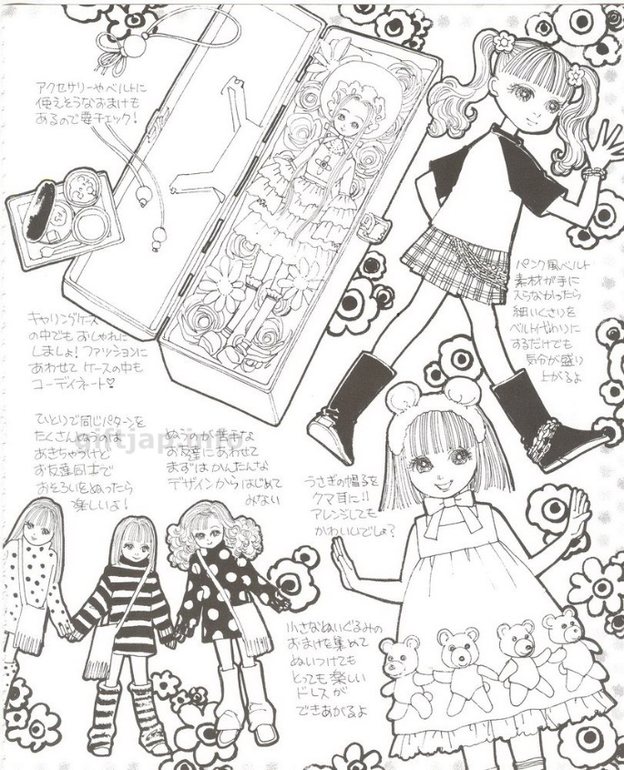 アクセサリーやベルトに
使えそうなおまけも
あるので要チェック!
パンク風ベルト
素材が手に
入らなかったら
細いくさりを
ベルト代わりに
するだけでも
気分が盛り
上がるよ
キャリングケース
の中でもおしゃれに
しましょ!ファッションに
あわせてケースの中も
コーディネート♡
ひとりで同じパターンを
たくさんぬうのは
あきちゃうけど
お友達同士で
おそろいをぬったら
楽しいよ!
ぬうのが苦手な
お友達にあわせて
まずはかんたんな
デザインからはじめて
みない
うさぎの帽子を
クマ耳に!!
アレンジしても
かわいいでしょ?
小さなぬいぐるみの
おまけを集めて
ぬいつけても
とっても楽しい
ドレスが
できあがるよ
giftjap.info